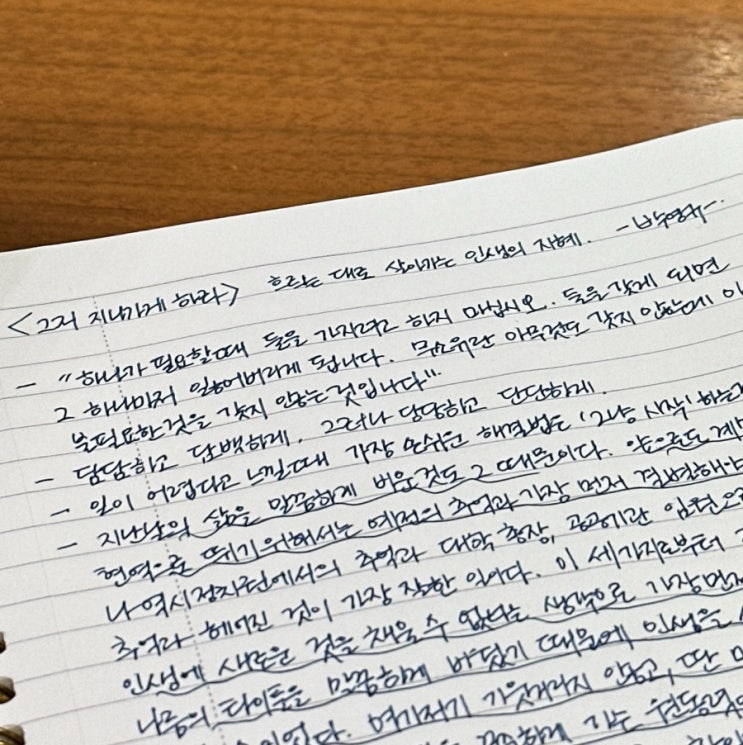 <그저 지나가게 하라> 흐르는 대로 살아가는 인생의 지혜. -박영규-
- "하나가 필요할때 둘을 가지려고 하지 마십시오. 둘을 갖게 되면
그 하나마저 잃어버리게 됩니다. 무소유란 아무것도 갖지 않는게 아
불필요한것을 갖지 않는것입니다".
- 담담하고 담백하게. 그러나 당당하고 단단하게.
- 일이 어렵다고 느낄때 가장 손쉬운 해결법은 '그냥 시작' 하는
- 지난날의 삶을 말끔하게 비운것도 그 때문이다. 앞으로도 계
현역으로 뛰기위해서는 예전의 추억과 가장 먼저 결별해야
나 역시 정치권에서의 추억과 대학 총장, 공공기관 임원으
추억과 헤어진 것이 가장 잘한 일이다. 이 세가지로부터
인생에 새로운 것을 채울 수 없다는 생각으로 가장 먼저
나름의 타이틀을 말끔하게 비웠기 때문에 인생을
여기저기 기웃거리지 않고, 딴
가는 원동력